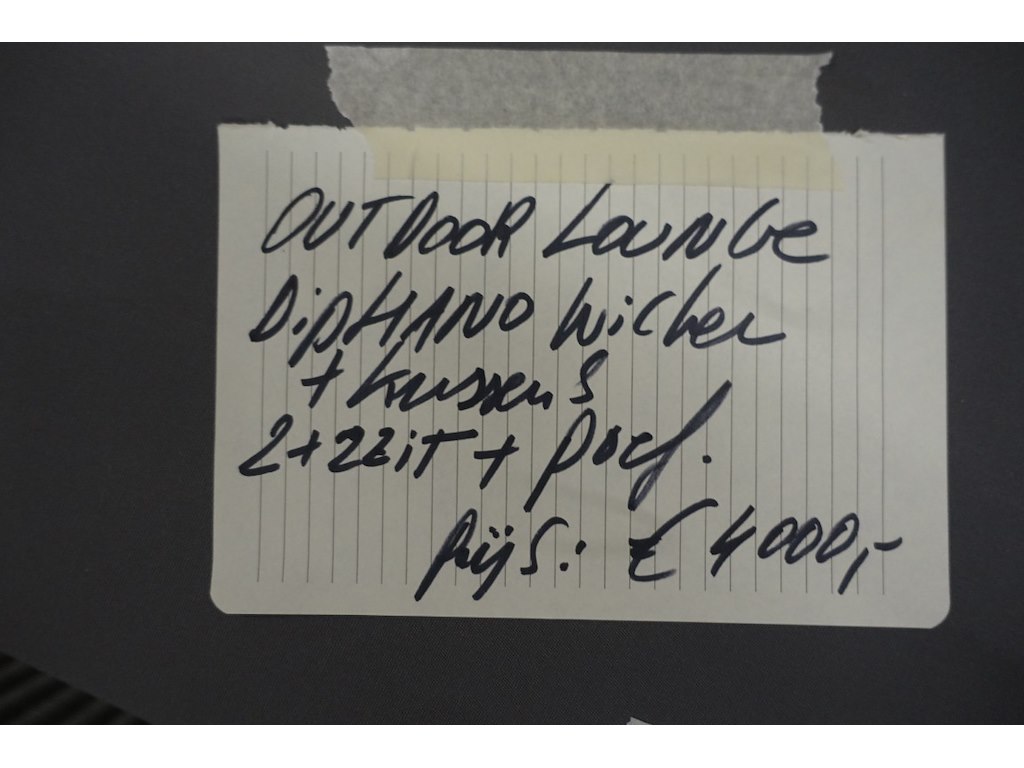 OUTDOOR LOUNGE
DipHANO Wicker
+ Kussens
2+2Zit + poef.
prijs: € 4000,-